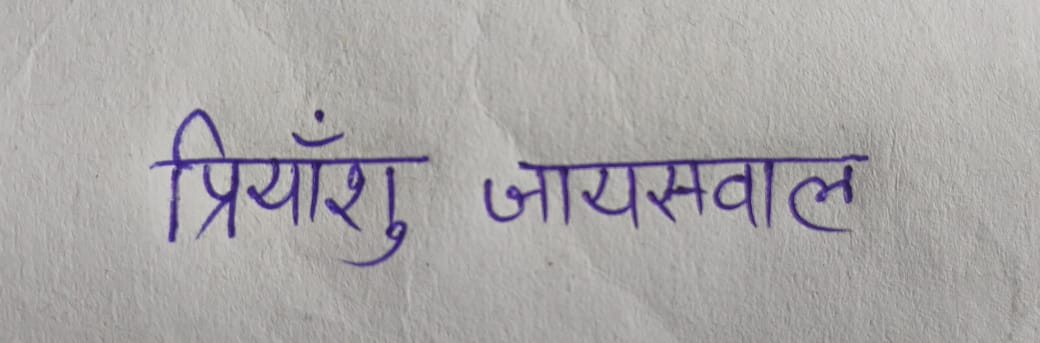 प्रियाँशु जायसवाल